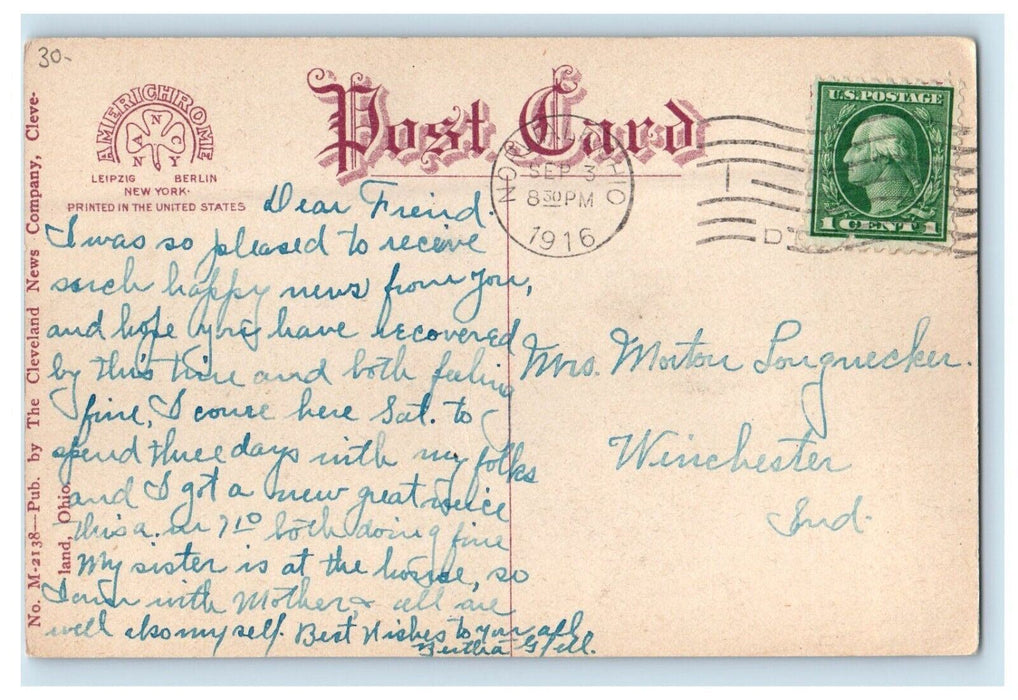 30-
AMERICHROME
A N C O N Y
LEIPZIG BERLIN
NEW YORK.
PRINTED IN THE UNITED STATES
Post Card
NO OHIO
SEP 3
8 30 PM
1916
U.S. POSTAGE
1 CENT 1
No. M-2138—Pub. by The Cleveland News Company, Cleve-
land, Ohio.
Dear Freind.
I was so pleased to receive
such happy news from you,
and hope you have recovered
by this time and both feeling
fine, I come here Sat. to
spend three days with my folks
and I got a new great neice
this a.m 7 10 both doing fine
My sister is at the house, so
I am with Mother & all are
well also myself. Best Wishes to you all
Bertha
Mrs. Morton Longnecker.
Winchester
Ind.